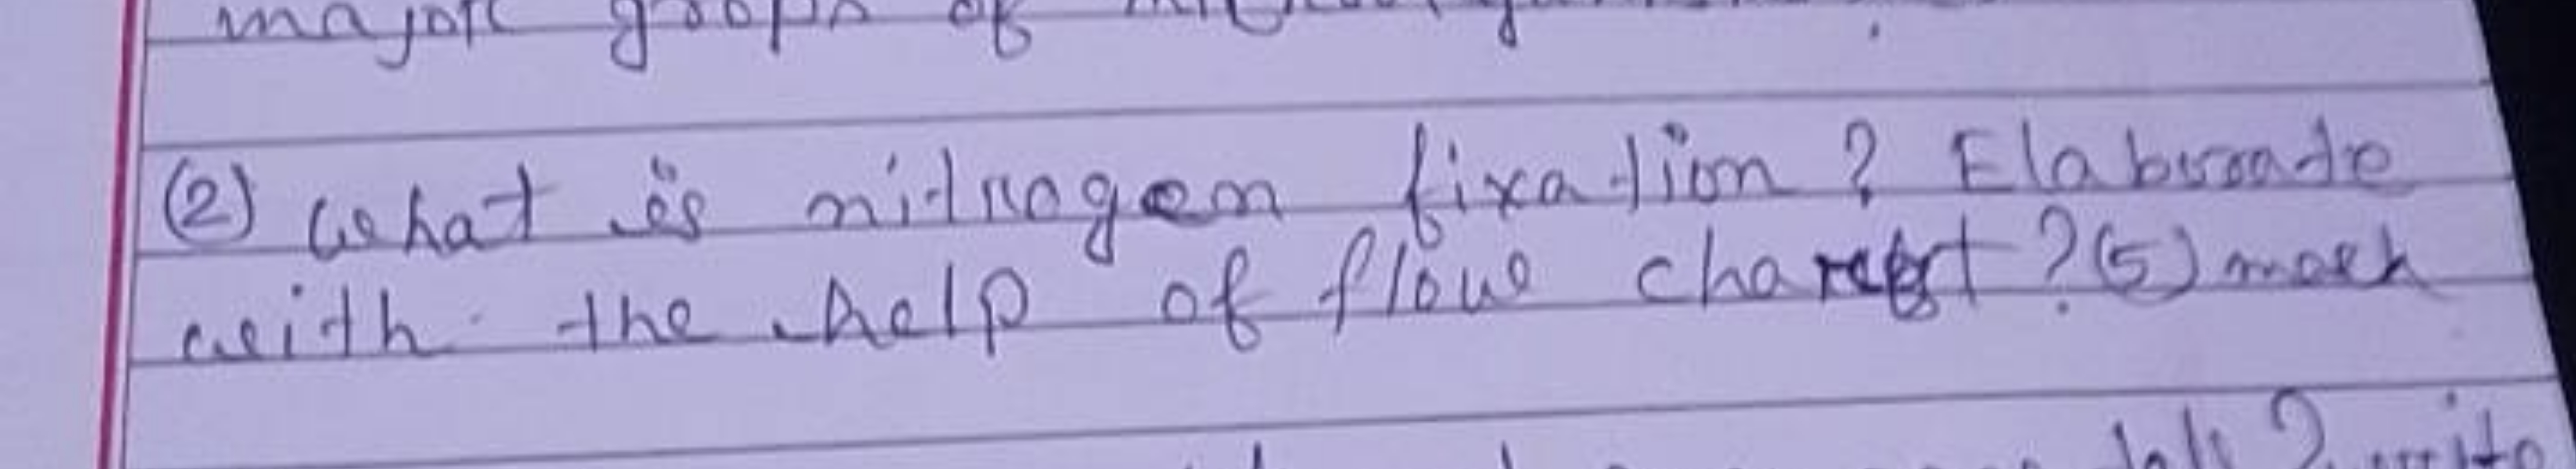 major groops of
(2) what is nitrogen fixation ? Elaborate
with the help of flow chart ? (5) mark